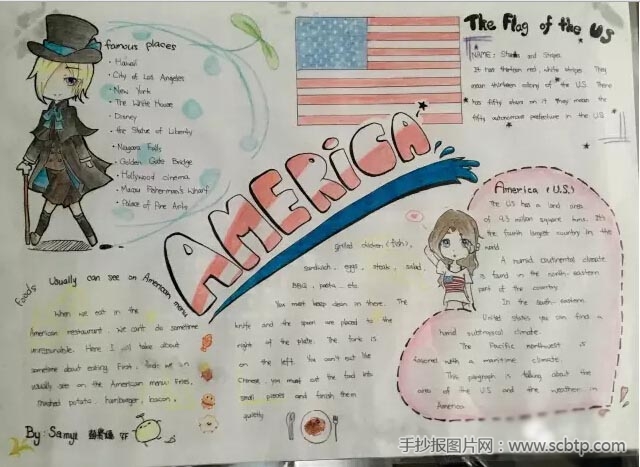 famous places
• Hawaii
• City of Los Angeles
• New York
• The White House
• Disney
• the Statue of Liberty
• Niagara Falls
• Golden Gate Bridge
• Hollywood cinema
• Fisherman's Wharf
• Palace of Fine Arts
The Flag of the US
NAME: and Stripes
It has thirteen red, white stripes. They
mean thirteen colony of the U.S. There
has fifty stars on it they mean the
fifty autonomous prefecture in the US
AMERICA
America (U.S.)
The US has a land area
of 9.3 million square kms. It's
the fourth largest country in the
world
A humid continental climate
is found in the north-eastern
part of the country.
In the south-eastern
United States you can find a
humid subtropical climate.
The Pacific northwest is
favored with a maritime climate.
This paragraph is talking about the
area of the U.S and the weather in
America
Foods usually can see on American menu
When we eat in the
American restaurant. We can't do sometime
Here I will take about
sometime about eating. First,
usually see on the American menu: fries,
mashed potato, hamburger, bacon,
grilled chicken (fish),
sandwich, eggs, steak, salad,
BBQ, pasta, etc.
You must keep clean in there. The
knife and the spoon are placed to the
right of the plate. The fork is
on the left. You can't eat like
Chinese, you must cut the food into
small pieces and finish them
quietly
By: Samyi
手抄报图片网:www.scbtp.com